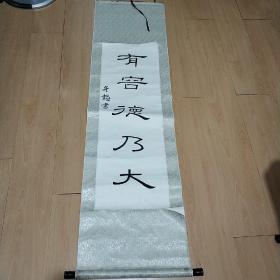 有容德乃大
書